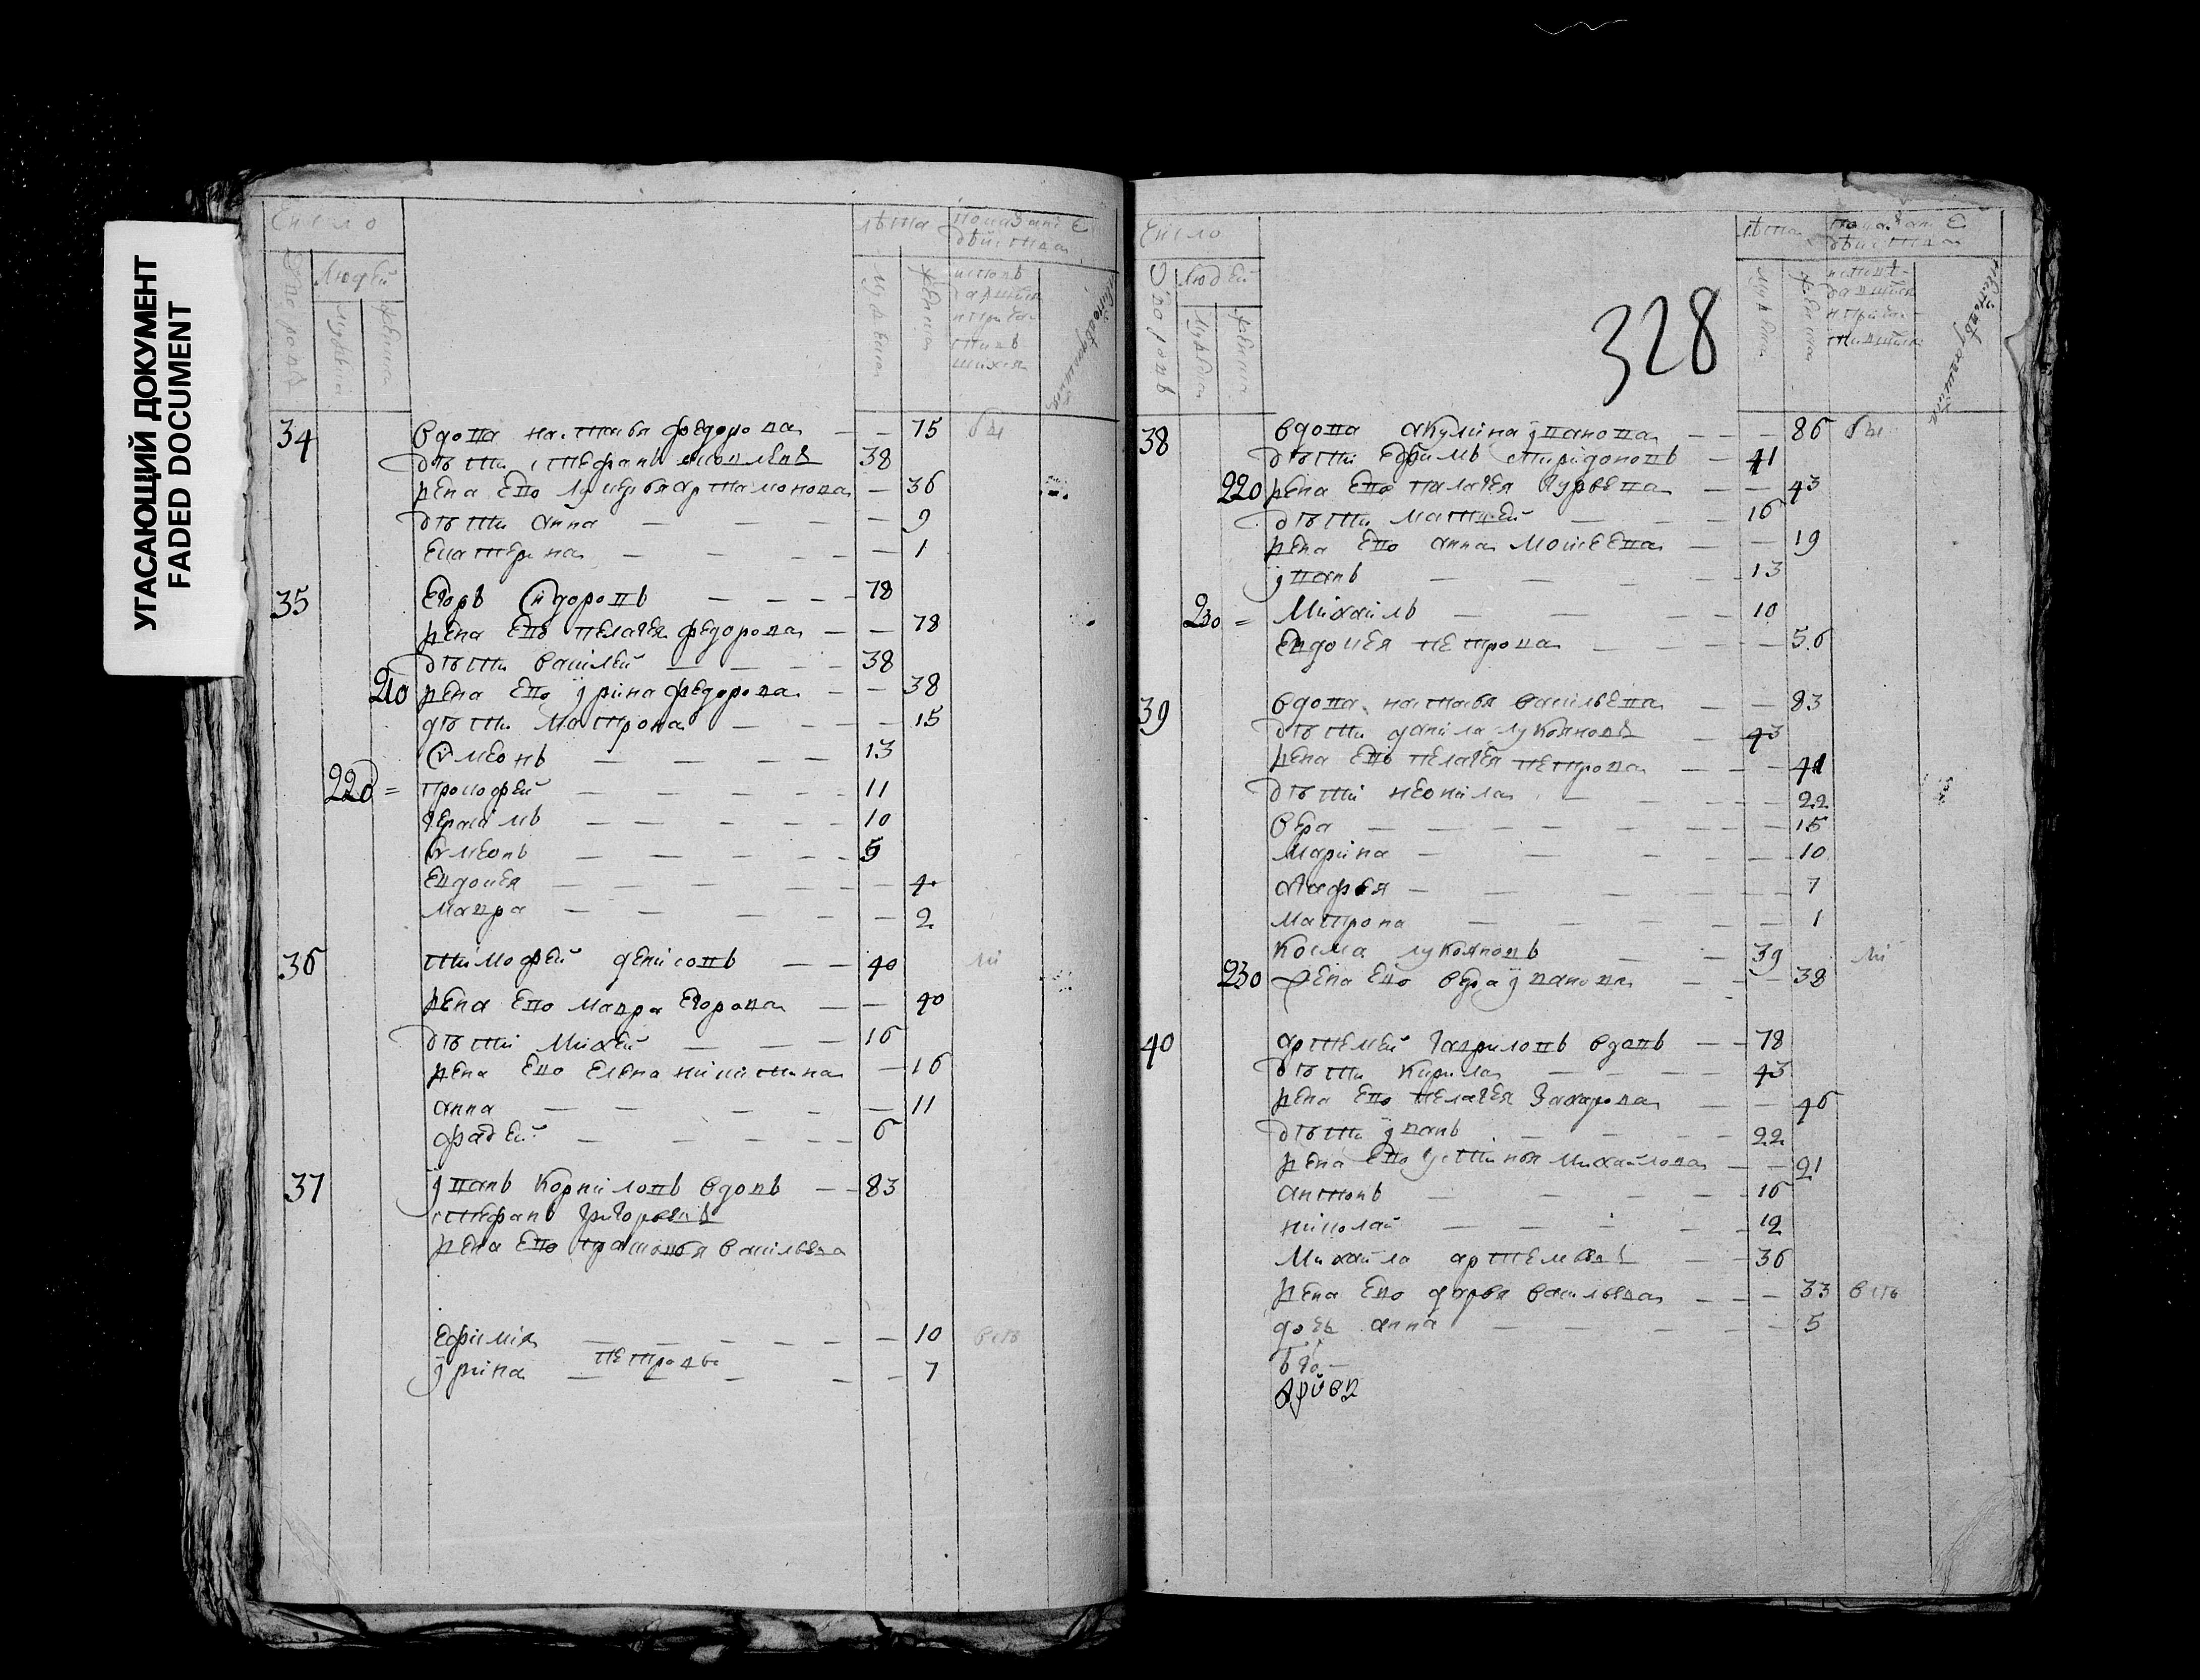 УГАСАЮЩИЙ ДОКУМЕНТ
FADED DOCUMENT
Число
Людей
лѣта
34 вдова настасья федорова — — 75 бы
дѣти стефанъ 38
жена ево лукерья артамонова — 36
дѣти анна — — — 9
екатерина — — — 1
35 Егоръ Сидоровъ — — — 78
жена ево пелагея федорова — — 78
дѣти василей — — — 38
210 жена ево ирина федорова — — 38
дѣти матрона — — — 15
Симеонъ — — — 13
220 = прокофей — — — 11
герасимъ — — — 10
Симеонъ — — — 5
Евдокея — — — 4
мавра — — — 2
36 тимофей денисовъ — — 40
жена ево мавра Егорова — — 40
дѣти михей — — — 16
жена ево Елена никитина — 16
анна — — — 11
фадей — — — 6
37 иванъ корниловъ вдовъ — — 83
стефанъ григорьевъ
жена ево прасковья васильева
Ефимия — — — 10
петровы
ирина — — — 7
Число
Людей
лѣта
328
38 вдова акулина иванова — — — 86 бы
дѣти Ефимъ спиридоновъ — 41
220 жена ево пелагея гурьева — — 43
дѣти матвей — — 16
жена ево анна моисеева — — 19
иванъ — — — 13
230 = Михаилъ — — — 10
Евдокея петрова — — — 56
39 вдова настасья васильева — — 83
дѣти данила лукояновъ — 43
жена ево пелагея петрова — — 41
дѣти неонила — — 22
вера — — — 15
марина — — — 10
агафья — — — 7
матрона — — — 1
косма лукояновъ — — 39
230 жена ево вера иванова — — 38
40 артемей гавриловъ вдовъ — — 78
дѣти кирила — — — 43
жена ево пелагея захарова — — 46
дѣти иванъ — — — 22
жена ево устинья михайлова — — 21
антонъ — — — 16
николай — — — 12
михаила артемьевъ — — 36
жена ево дарья васильева — — — 33
дочь анна — — — 5